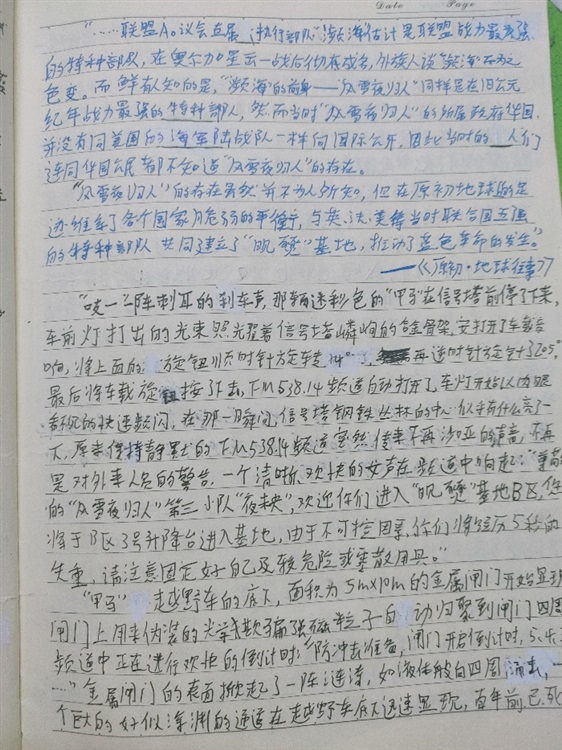 Date Page
"……联盟A。议会直属 执行部队"濒海"估计是联盟战力最强
的特种部队，在奥尔加星云一战后彻底成名，外族人谈"濒海"而为之
色变。而鲜有人知的是，"濒海"的前身——"风雪夜归人"同样是在旧公元
纪年战力最强的特种部队，然而当时"风雪夜归人"的所属政府华国
并没有同美国的海军陆战队一样向国际公开，因此当时的 人们
连同华国公民都不知道"风雪夜归人"的存在。
"风雪夜归人"的存在虽然并不为人所知，但在原初地球的是
还维系了各个国家脆弱的平衡，与英、法、美等当时联合国五强
的特种部队 共同建立了" "基地，推动了蓝色革命的发生。"
——《原初·地球往事》
"吱一"一阵刺耳的刹车声，那辆迷彩色的"甲马"在信号塔前停了下来，
车前灯打出的光束照亮着信号塔嶙峋的合金骨架，安打开了车载音
响，将上面的 旋钮顺时针旋转 14° 再逆时针旋转 3205°
最后将车载旋钮按了下去，FM538.14频道自动打开了，车灯开始以肉眼
看不见的快速频闪，在那一瞬间，信号塔钢铁丛林的中心似乎有什么亮了一
下，原来保持静默的FM538.14频道突然传来不再 的声音，不再
是对外来人员的警告，一个清晰、欢快的女声在频道中响起："尊敬
的"风雪夜归人"第三小队"夜未央"，欢迎你们进入" "基地B区，您
将于B区3号升降台进入基地，由于不可控因素，你们将经历5秒的
失重，请注意固定好自己及较危险或零散用具。"
"甲马" 越野车的底下，面积为5m×10m的金属闸门开始显现
闸门上用来伪装的光学欺骗强磁粒子自 动归聚到闸门四周
频道中正在进行欢快的倒计时："防冲击准备，闸门开启倒计时，5、4、3
……"金属闸门的表面掀起了一阵涟漪，如液体般向四周 涌去，一
个巨大的好似深渊的通道在越野车底下迅速显现，百年前已死